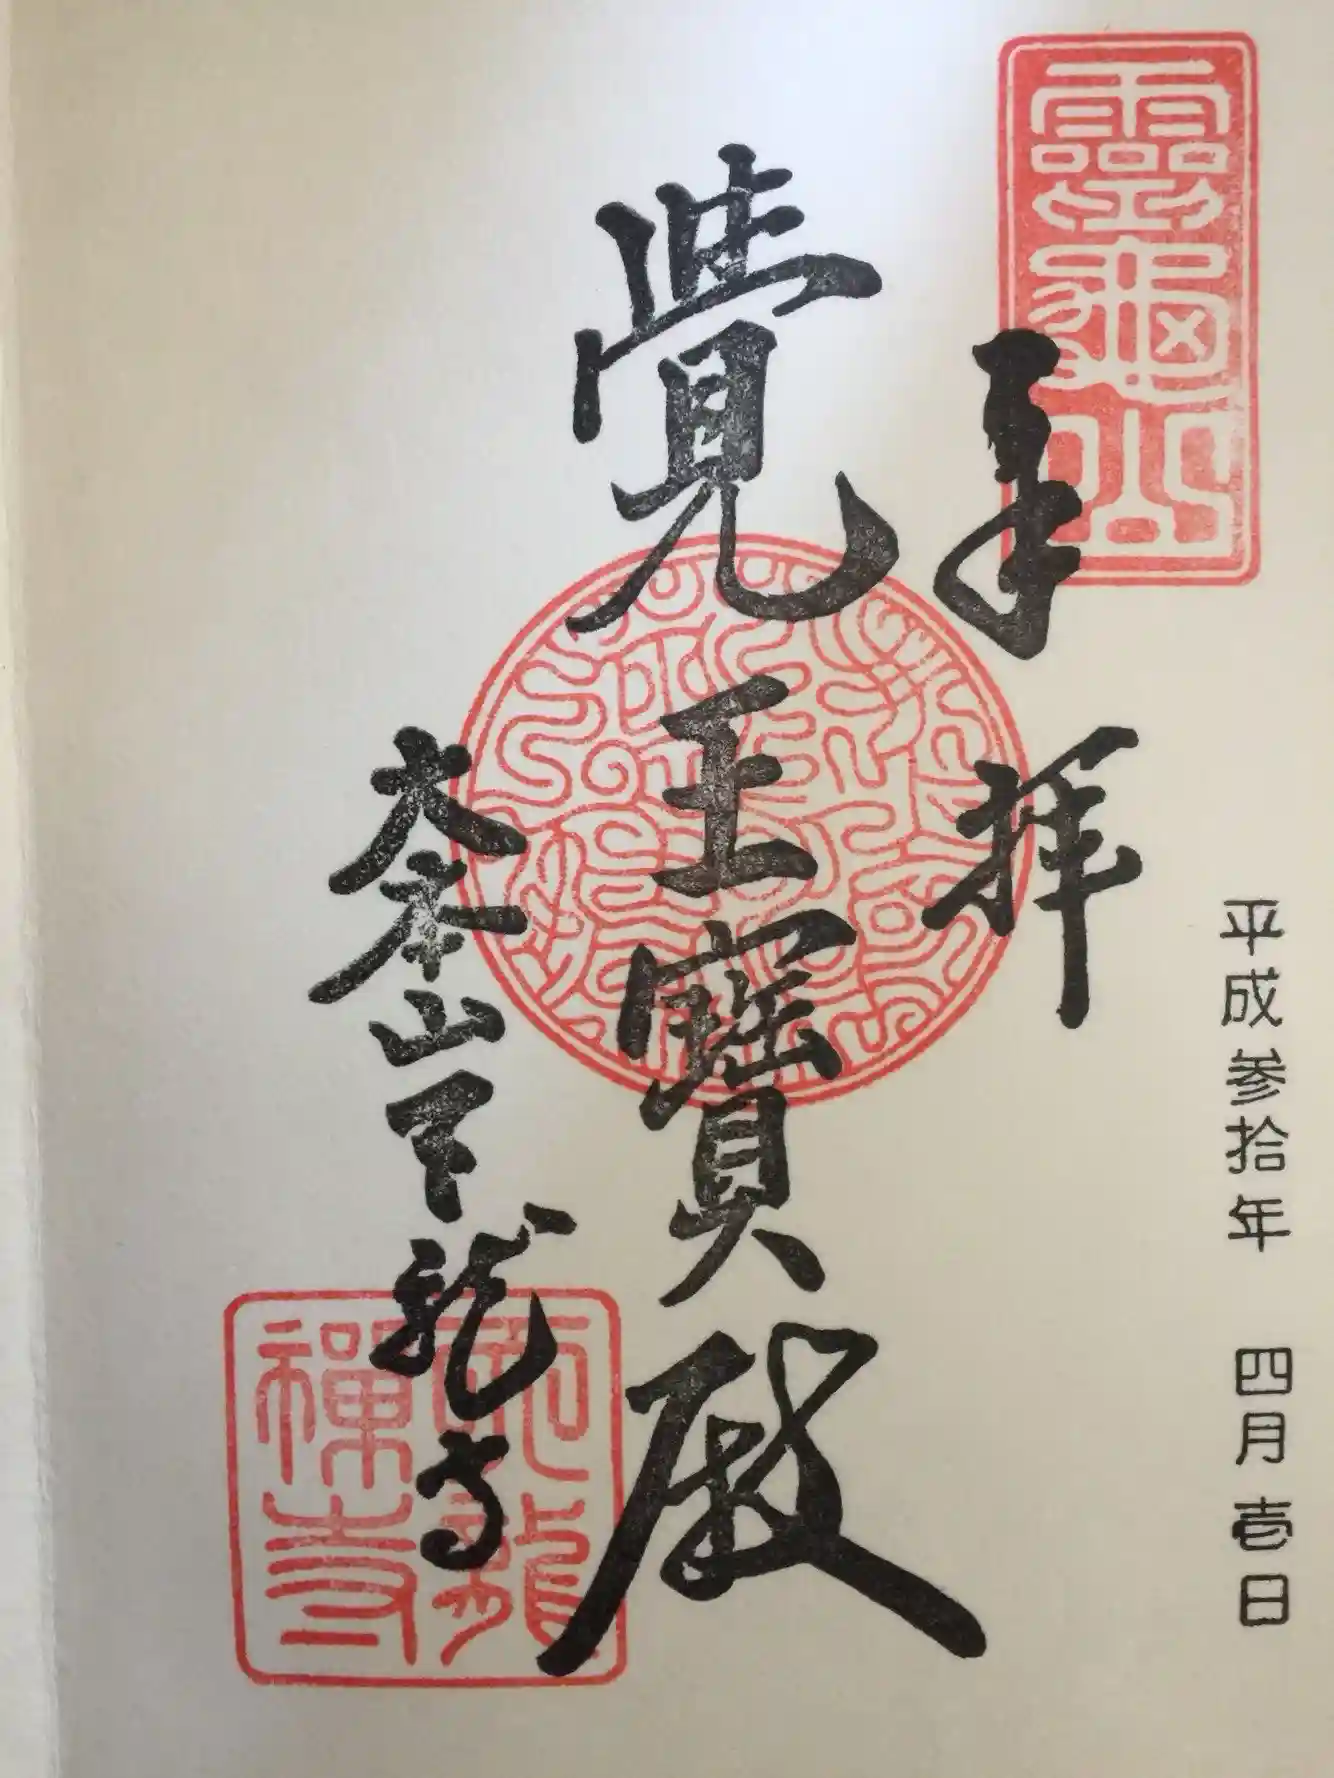 靈龜山
平成参拾年 四月壱日
奉拝
覺王寶殿
大本山天龍寺
天龍禪寺